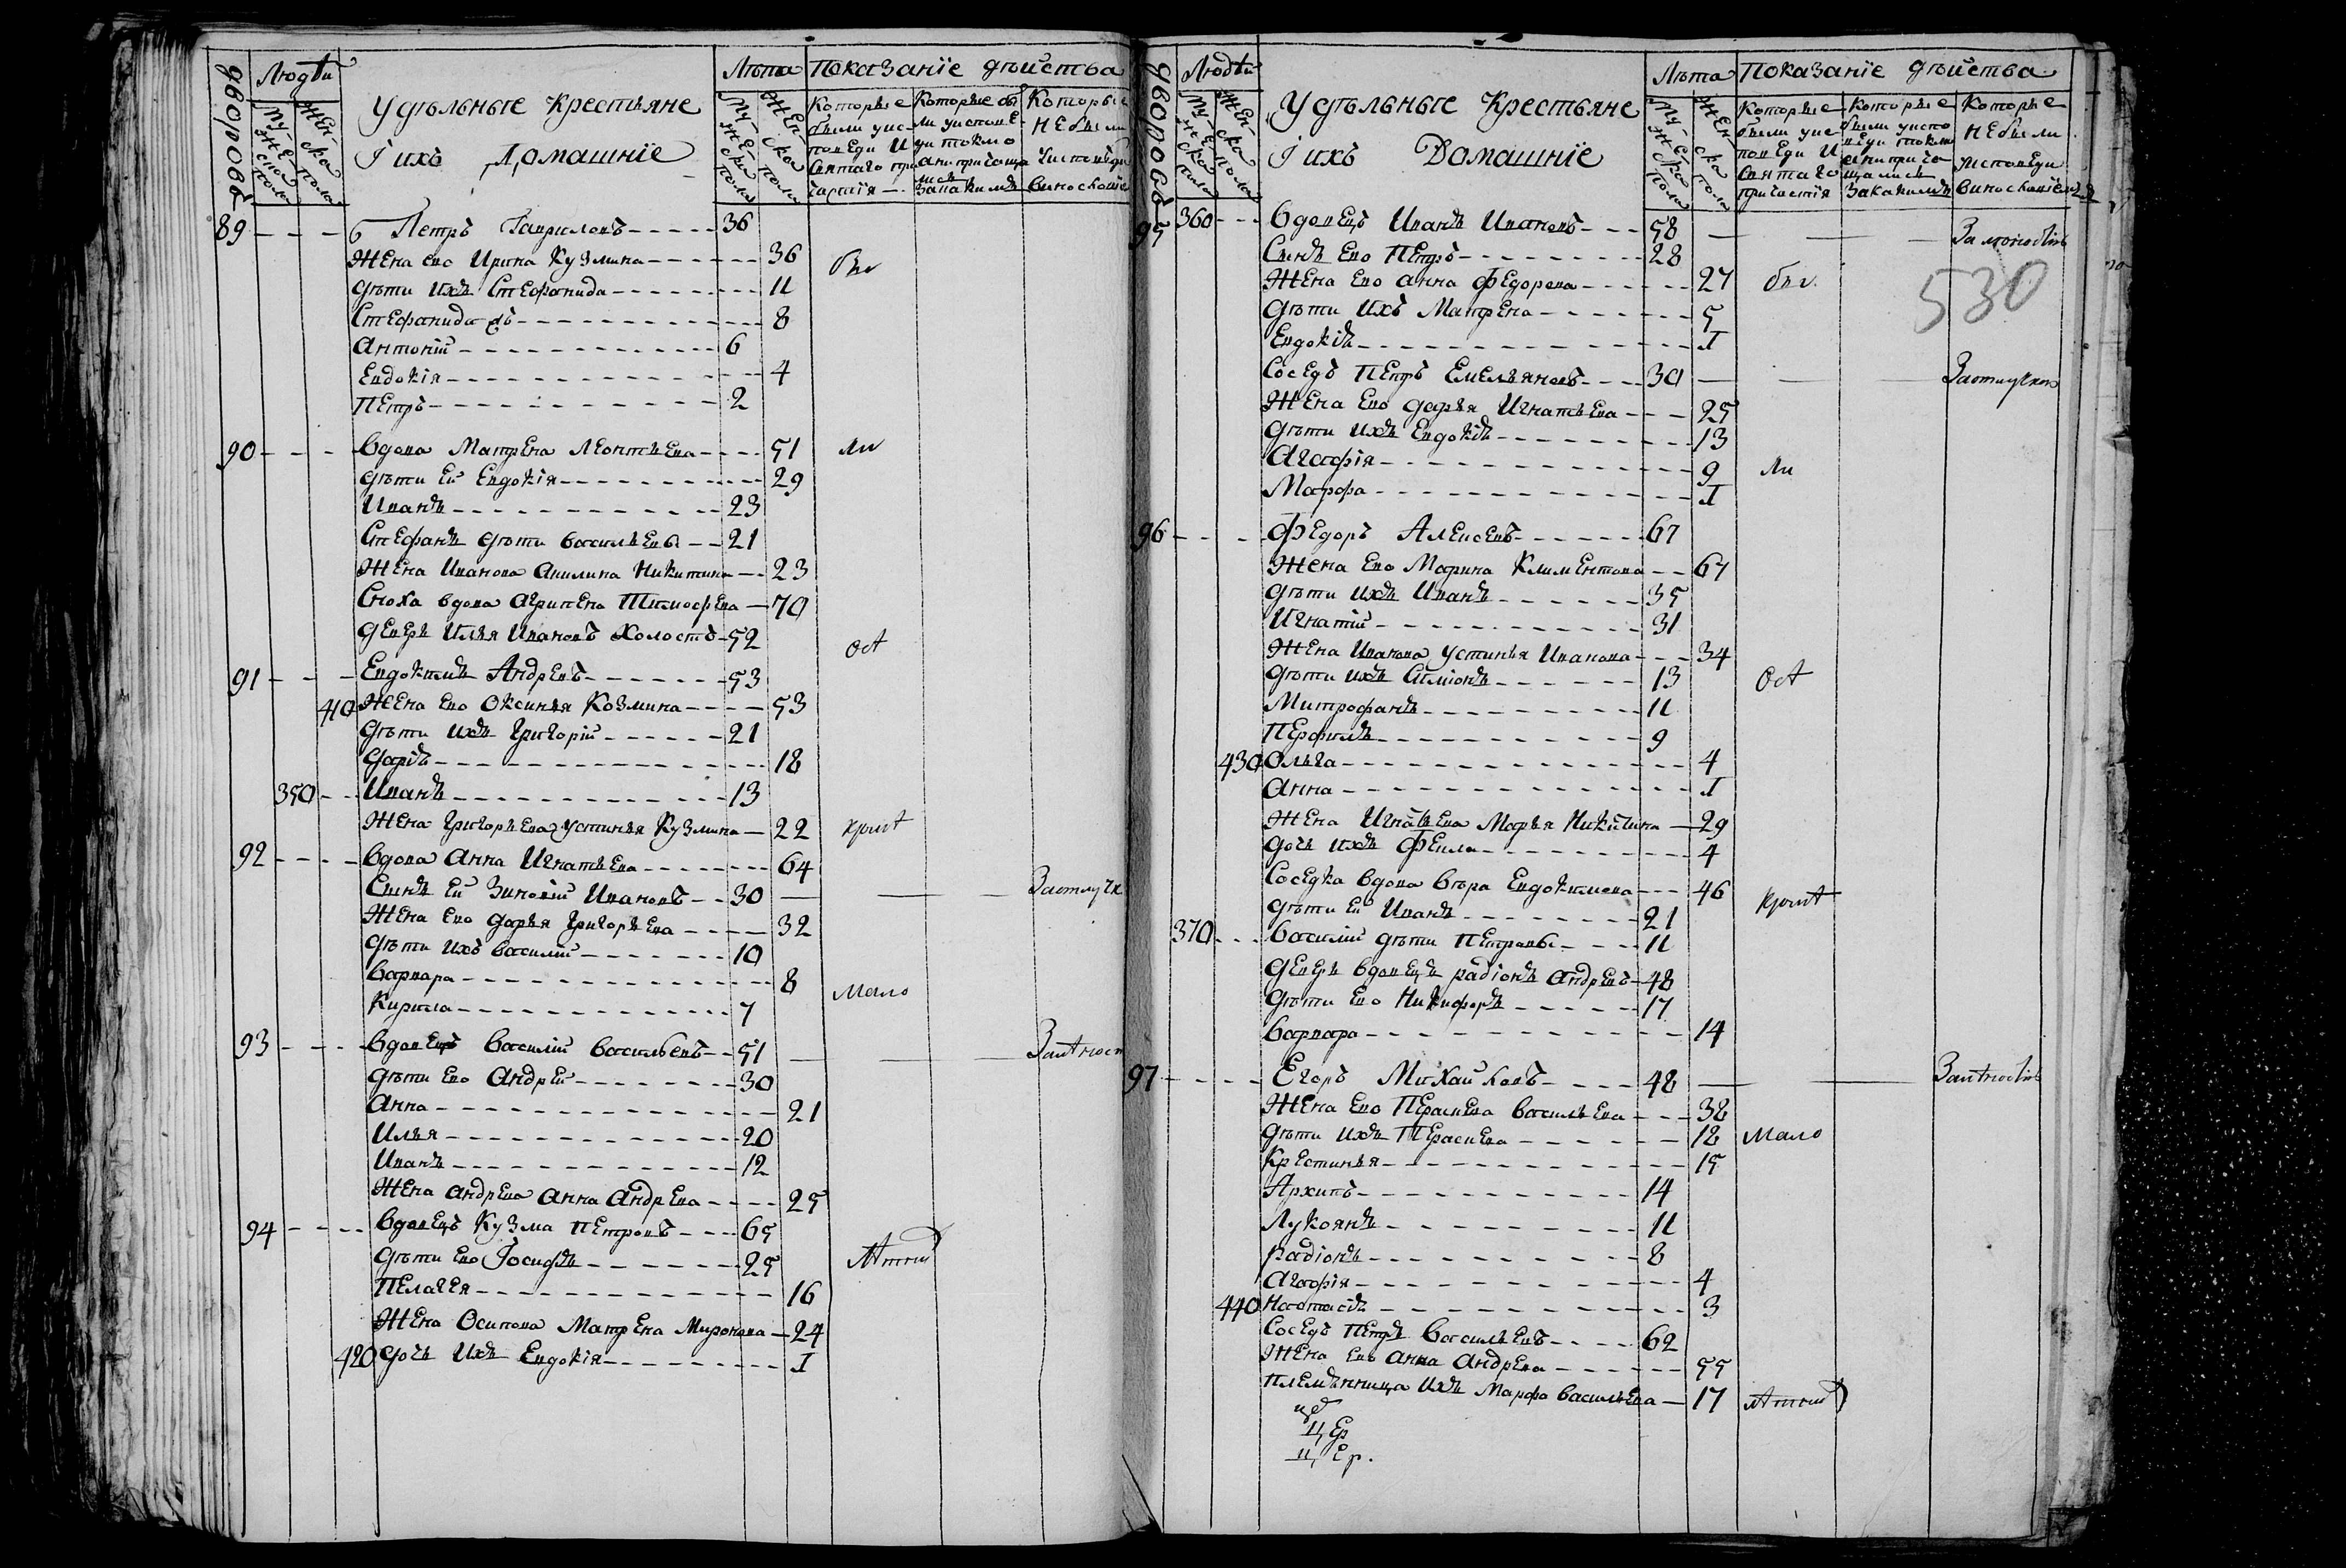 дворовъ
Людѣи
Мужеска полу
Женска полу
Удѣльныѣ Крестьяне
I ихъ Домашнїе
Лѣта
Мужеска полу
Женска полу
Показанїе дѣиства
Которые были уисповеди И Святаго причастїя
Которые были уисповеди токмо анипричащались
Которые Небыли уисповеди
89 Петръ Гавриловъ 36
Жена ево Ирина Кузмина 36 бы
дѣти ихъ Стефанида 11
Стефанида дь 8
Антонїй 6
Евдокїя 4
Петръ 2
90 Вдова Матрена Леонтьева 51 ли
дѣти Еи Евдокїя 29
Иванъ 23
Стефанъ дѣти васильевы 21
Жена Иванова Акилина Никитина 23
Сноха вдова Агрипена Тимофева 70
Деверь Илья Ивановъ Холостъ 52 ост
91 Евдокимъ Андревъ 53
410 Жена Ево Оксинья Козмина 53
дѣти ихъ Григорїй 21
Дарїѣ 18
350 Иванъ 13
Жена Григорьева Устинья Кузмина 22
92 Вдова Анна Игнатьева 64
Сынъ Еи Зиновїй Ивановъ 30 Заотлучк
Жена Ево Дарья Григорьева 32
дѣти ихъ василїй 10
варвара 8 Мало
Кирила 7
93 вдовецъ Василїй Васильевъ 51
дѣти Ево Андрей 30
Анна 21
Илья 20
Иванъ 12
Жена Андрева Анна Андрева 25
94 вдовецъ Кузма Петровъ 65
дѣти Ево Iосифъ 25
Пелагея 16
Жена Осипова Матрена Миронова 24
420 дочь Ихъ Евдокїя I
дворовъ
Людѣи
Мужеска полу
Женска полу
Удѣльныѣ Крестьяне
I ихъ Домашнїе
Лѣта
Мужеска полу
Женска полу
Показанїе дѣиства
Которые были уисповеди И Святаго причастїя
Которые были уисповеди токмо анипричащались
Которые Небыли уисповеди
95 360 вдовецъ Иванъ Ивановъ 58
Сынъ Ево Петръ 28
530
Жена Ево Анна Федорова 27 бы.
дѣти Ихъ Матрена 5
Евдокїѣ I
Соседъ Петръ Емельяновъ 30
Жена Ево дарья Игнатьева 25
дѣти ихъ Евдокїѣ 13
Агафїя 9 ли
Марфа I
96 Федоръ Алексевъ 67
Жена Ево Марина Климентова 67
дѣти ихъ Иванъ 35
Игнатїй 31
Жена Иванова Устинья Иванова 34
дѣти ихъ Симионъ 13 Ост
Митрофанъ 11
Перфилъ 9
430 Ольга 4
Анна I
Жена Игнатьева Марья Никитина 29
дочь ихъ Фекла 4
Соседка вдова Вѣра Евдокимова 46
дѣти Еи Иванъ 21
370 василїй дѣти Петровы 11
Деверь вдовецъ радїонъ Андревъ 48
дѣти Ево Никифоръ 17
варвара 14
97 Егоръ Михайловъ 48
Жена Ево Пераскева Васильева 38
дѣти ихъ Пераскева 18 Мало
Крестинья 15
Архипъ 14
Лукоянъ 11
радїонъ 8
Агафїя 4
440 Настасїѣ 3
Соседъ Петръ Васильевъ 62
Жена Ево Анна Андрева 55
племѣнница ихъ Марфа Васильева 17